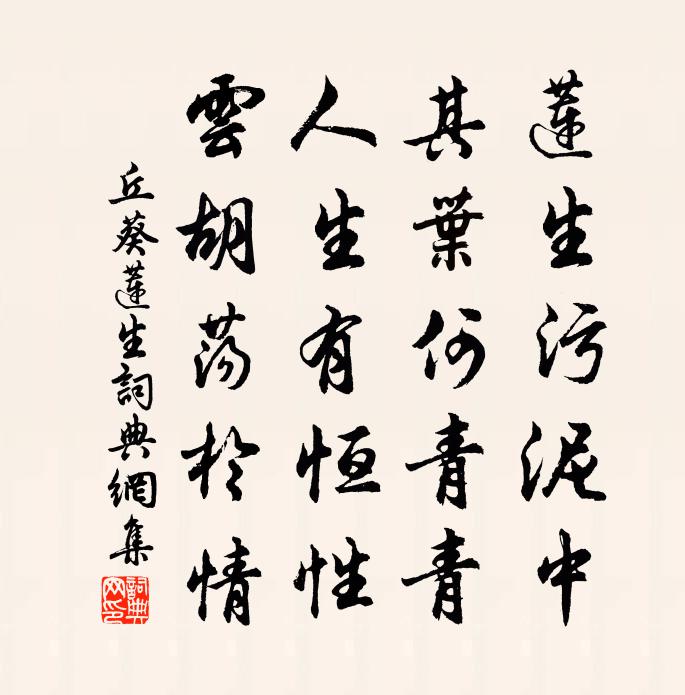 蓮生污泥中
其葉何青青
人生有恒性
雲胡蕩於情
丘葵蓮生詞典網集
詞典網印